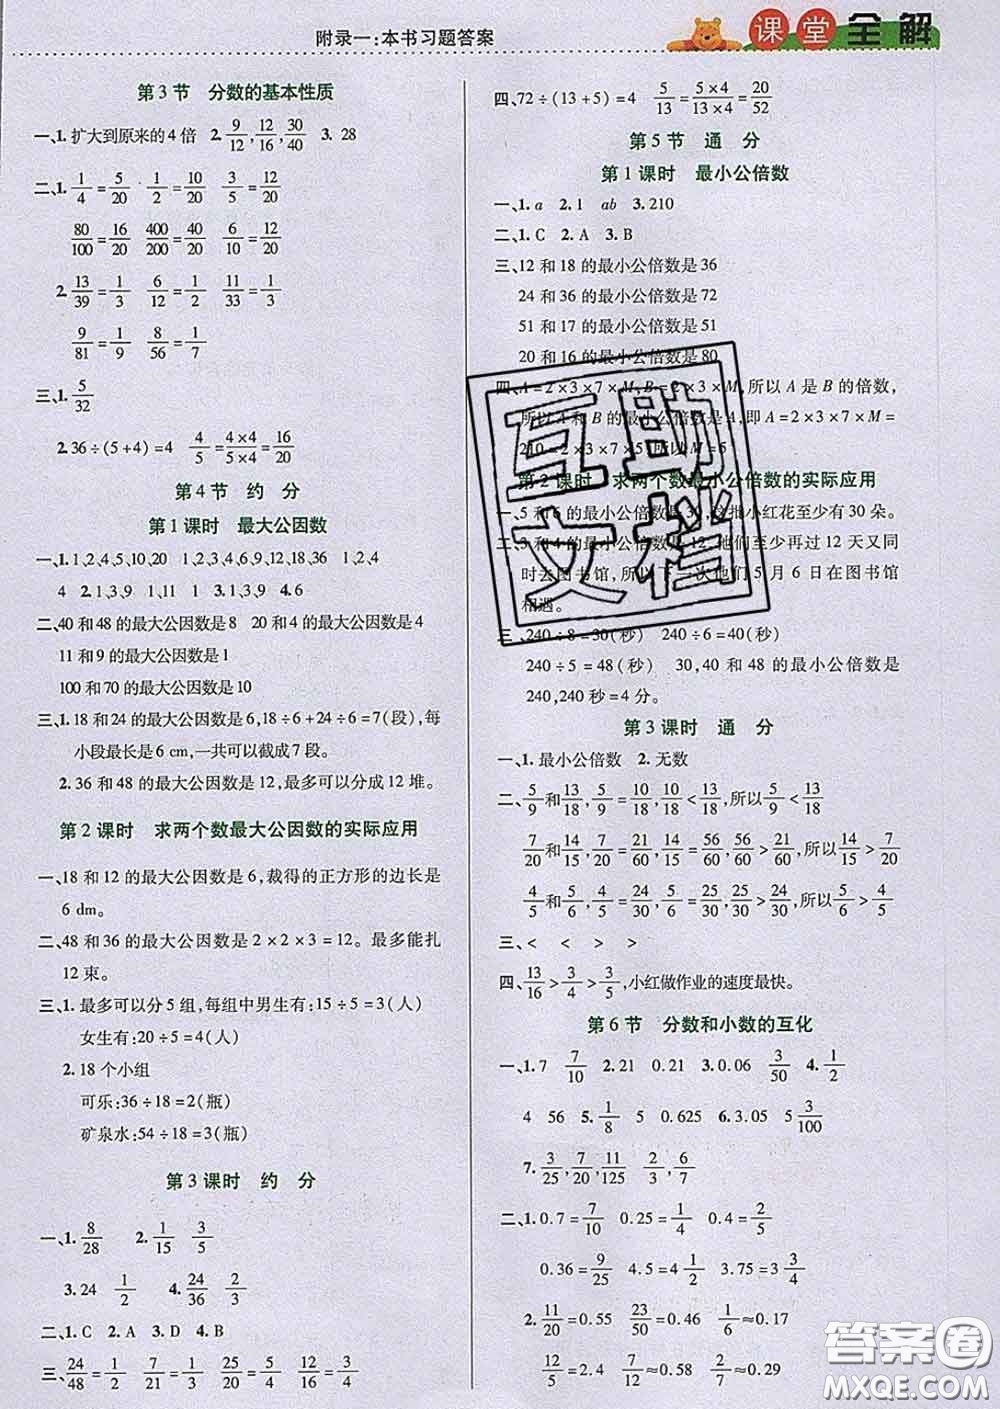 附录一:本书习题答案
课堂全解
第3节 分数的基本性质
一、1. 扩大到原来的4倍 2. 9/12, 12/16, 30/40 3. 28
二、1. 1/4=5/20 1/2=10/20 3/5=12/20
80/100=16/20 400/200=40/20 6/10=12/20
2. 13/39=1/3 6/12=1/2 11/33=1/3
9/81=1/9 8/56=1/7
三、1. 5/32
2. 36÷(5+4)=4 4/5=4×4/5×4=16/20
第4节 约 分
第1课时 最大公因数
一、1. 1,2,4,5,10,20 1,2,3,4,6,9,12,18,36 1,2,4
4 2. 1,3,9 3. 1,2,3,6,9,18 4. 6
二、40和48的最大公因数是8 20和4的最大公因数是4
11和9的最大公因数是1
100和70的最大公因数是10
三、1. 18和24的最大公因数是6,18÷6+24÷6=7(段),每
小段最长是6 cm,一共可以截成7段。
2. 36和48的最大公因数是12,最多可以分成12堆。
第2课时 求两个数最大公因数的实际应用
一、18和12的最大公因数是6,裁得的正方形的边长是
6 dm。
二、48和36的最大公因数是2×2×3=12。最多能扎
12束。
三、1. 最多可以分5组,每组中男生有:15÷5=3(人)
女生有:20÷5=4(人)
2. 18个小组
可乐:36÷18=2(瓶)
矿泉水:54÷18=3(瓶)
第3课时 约 分
一、1. 8/28 2. 1/15 3/5
3. 24 1/2 4. 24/36 2/3
二、1. C 2. A 3. D 4. B
三、24/48=1/2 7/21=1/3 25/50=1/2 20/25=4/5
四、72÷(13+5)=4 5/13=5×4/13×4=20/52
第5节 通 分
第1课时 最小公倍数
一、1. a 2. 1 ab 3. 210
二、1. C 2. A 3. B
三、12和18的最小公倍数是36
24和36的最小公倍数是72
51和17的最小公倍数是51
20和16的最小公倍数是80
四、A=2×3×7×M,B=2×3×M,所以A是B的倍数,
所以A和B的最小公倍数是A,即A=2×3×7×M=
210=2×3×7×5,所以M=5
第2课时 求两个数最小公倍数的实际应用
一、5和6的最小公倍数是30,这批小红花至少有30朵。
二、3和4的最小公倍数是12,他们至少再过12天又同
时去图书馆,所以下一次他们5月6日在图书馆
相遇。
三、240÷8=30(秒) 240÷6=40(秒)
240÷5=48(秒) 30,40和48的最小公倍数是
240,240秒=4分。
第3课时 通 分
一、1. 最小公倍数 2. 无数
二、5/9和13/18, 5/9=10/18, 10/18<13/18,所以5/9<13/18
7/20和14/15, 7/20=21/60, 14/15=56/60, 56/60>21/60,所以14/15>7/20
4/5和5/6, 4/5=24/30, 5/6=25/30, 25/30>24/30,所以5/6>4/5
三、< < > >
四、13/16>3/4>3/5,小红做作业的速度最快。
第6节 分数和小数的互化
一、1. 7 7/10 2. 21 0.21 3. 0.06 3/50 4. 1/2
4 56 5. 1/8 5 0.625 6. 3.05 5 3/100
7. 3/25, 7/20, 11/125 2/3, 6/7
二、1. 0.7=7/10 0.25=1/4 0.4=2/5
0.36=9/25 4.5=4 1/2 3.75=3 3/4
2. 11/20=0.55 23/50=0.46 2 1/4=2.25
12/5=2.4 7/12≈0.58 2/7≈0.29
互助
文档
答案圈
MXQE.COM